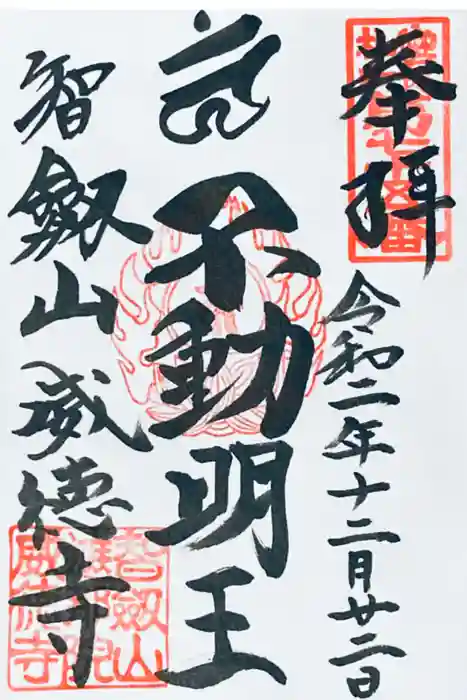 奉拝
令和二年十二月廿二日
不動明王
智劔山威徳寺